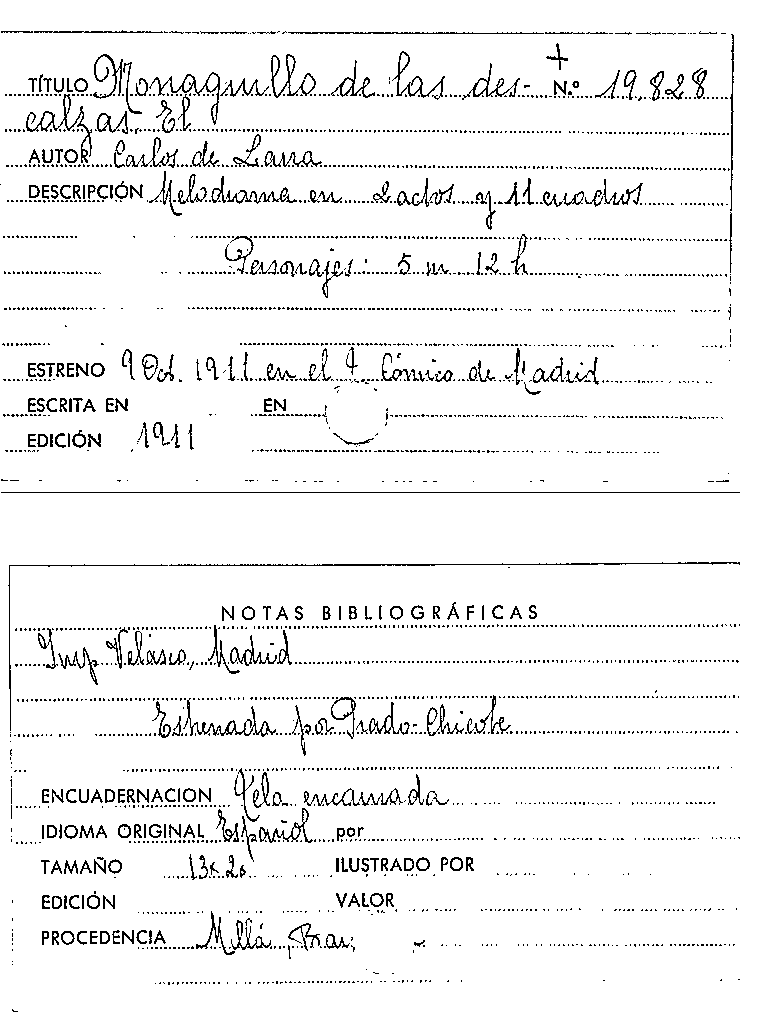 +
TÍTULO Monaguillo de las des- N.º 19.828
calzas. El
AUTOR Carlos de Larra
DESCRIPCIÓN Melodrama en 2 actos y 11 cuadros
Personajes: 5 m 12 h
ESTRENO 9 Oct. 1911 en el T. Cómico de Madrid
ESCRITA EN EN
EDICIÓN 1911
NOTAS BIBLIOGRÁFICAS
Imp Velasco, Madrid
Estrenada por Prado-Chicote
ENCUADERNACION Tela encarnada
IDIOMA ORIGINAL Español por
TAMAÑO 13x20 ILUSTRADO POR
EDICIÓN VALOR
PROCEDENCIA Millá